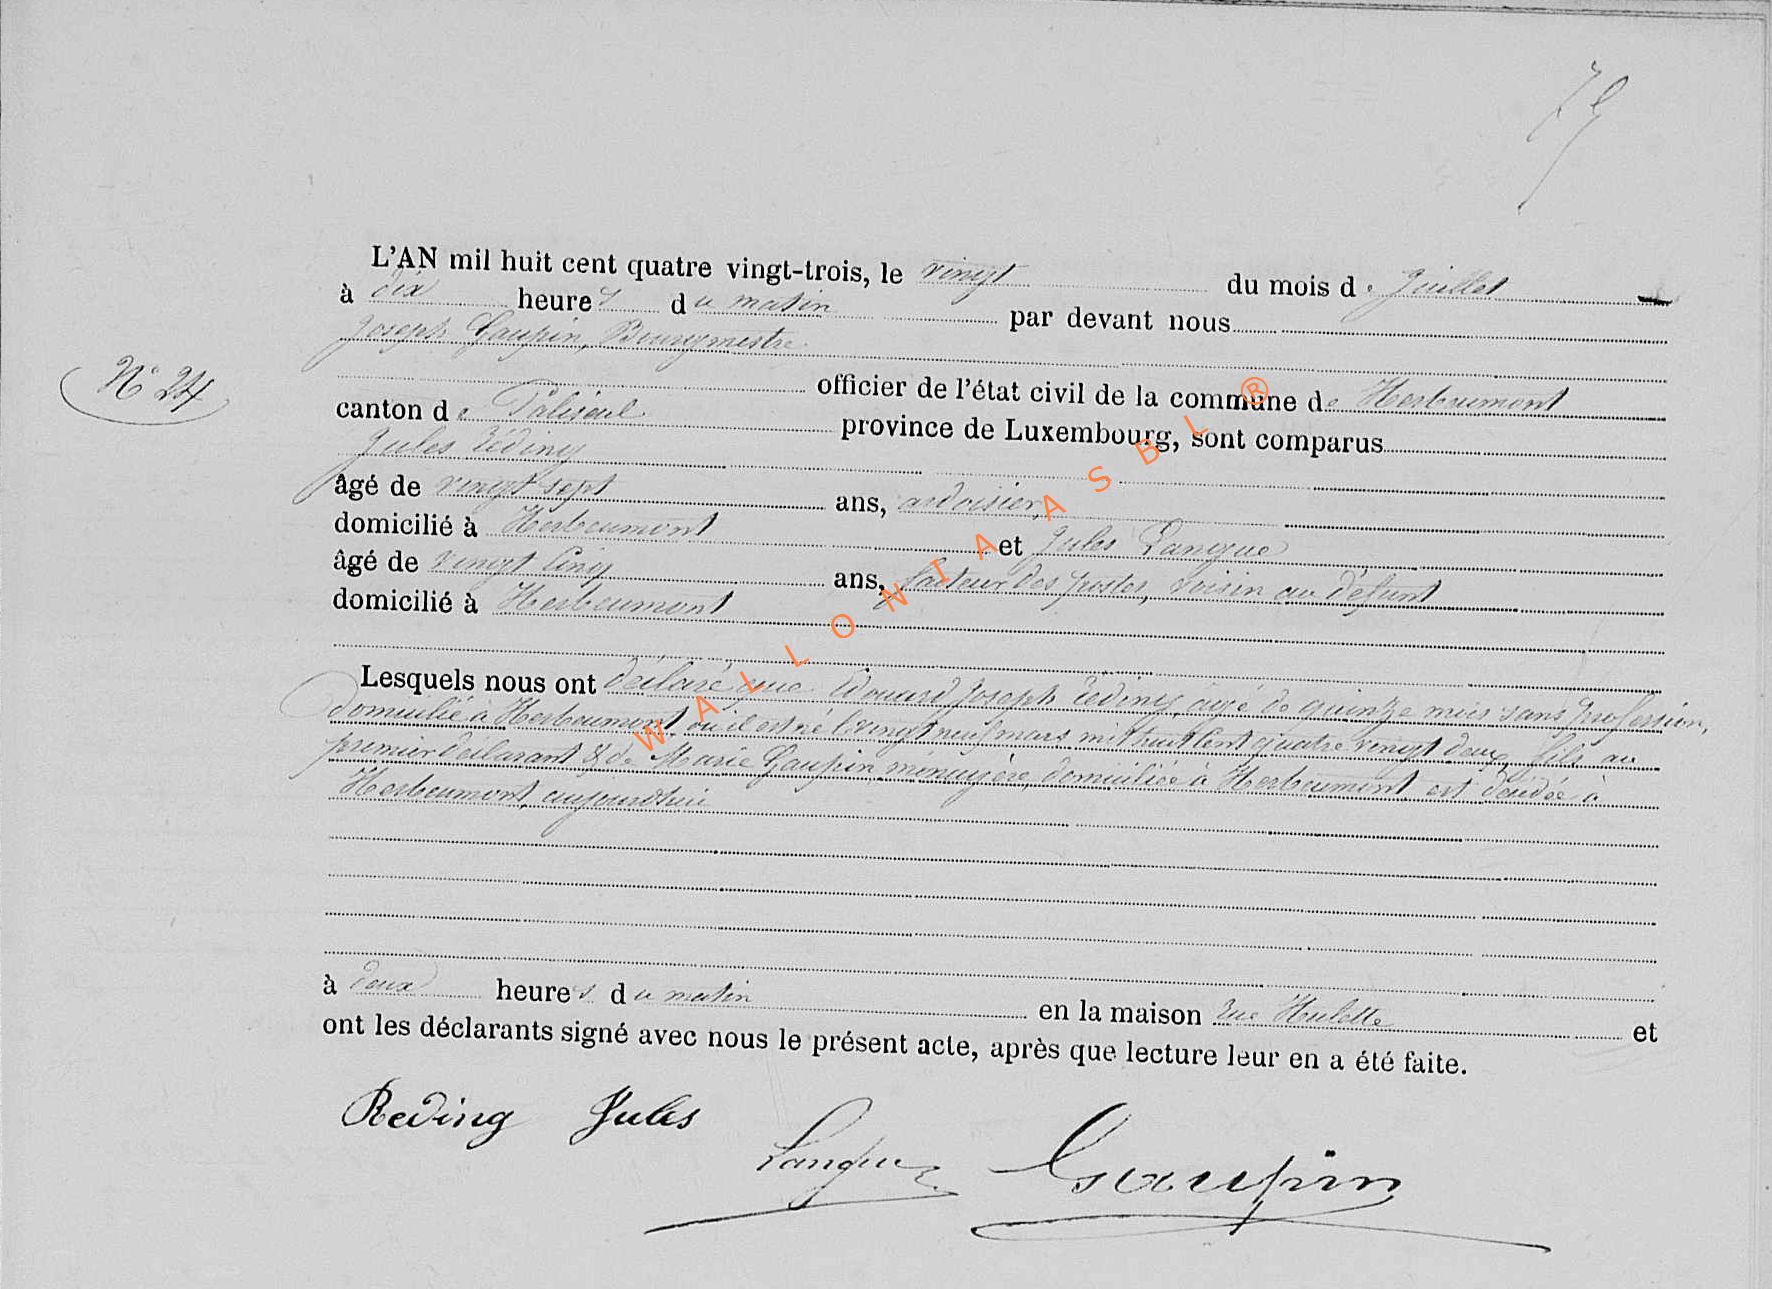 79
L'AN mil huit cent quatre vingt-trois, le vingt du mois de Juillet
à dix heures du matin par devant nous
Joseph Gaupin, Bourgmestre
N° 24
officier de l'état civil de la commune de Herbeumont
canton de Paliseul province de Luxembourg, sont comparus
Jules Réding
âgé de vingt sept ans, ardoisier,
domicilié à Herbeumont et Jules Langue
âgé de vingt cinq ans, facteur des postes, voisin au défunt
domicilié à Herbeumont
Lesquels nous ont déclaré que Edouard Joseph Réding, âgé de quinze mois sans profession,
domicilié à Herbeumont, où il est né le vingt neuf mars mil huit cent quatre vingt deux, fils au
premier déclarant & de Marie Gaupin ménagère, domiciliée à Herbeumont, est décédée à
Herbeumont, aujourd'hui
à deux heures du matin en la maison Rue Hulette et
ont les déclarants signé avec nous le présent acte, après que lecture leur en a été faite.
Reding Jules
Langue
Gaupin
WALLONIA ASBL ®